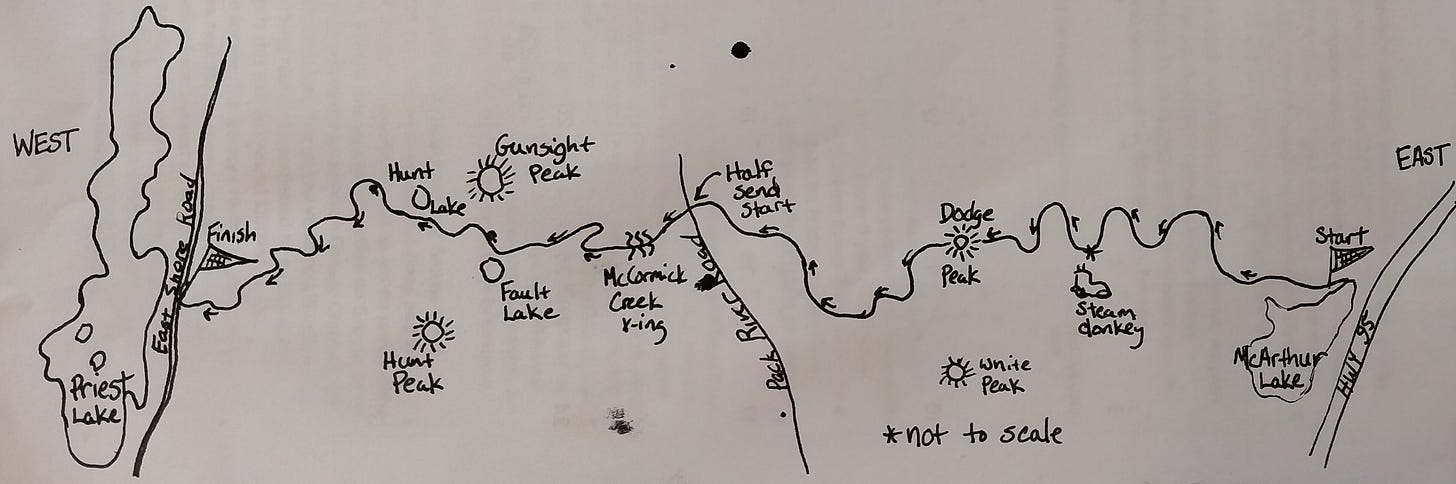 WEST
EAST
Gunsight
Peak
Hunt
Lake
Half
send
start
Dodge
Peak
Start
Finish
East Shore Road
McCormick
Creek
X-ing
Fault
Lake
Steam
donkey
Hunt
Peak
Pack River Road
White
Peak
McArthur
Lake
HWY 95
Priest
Lake
*not to scale